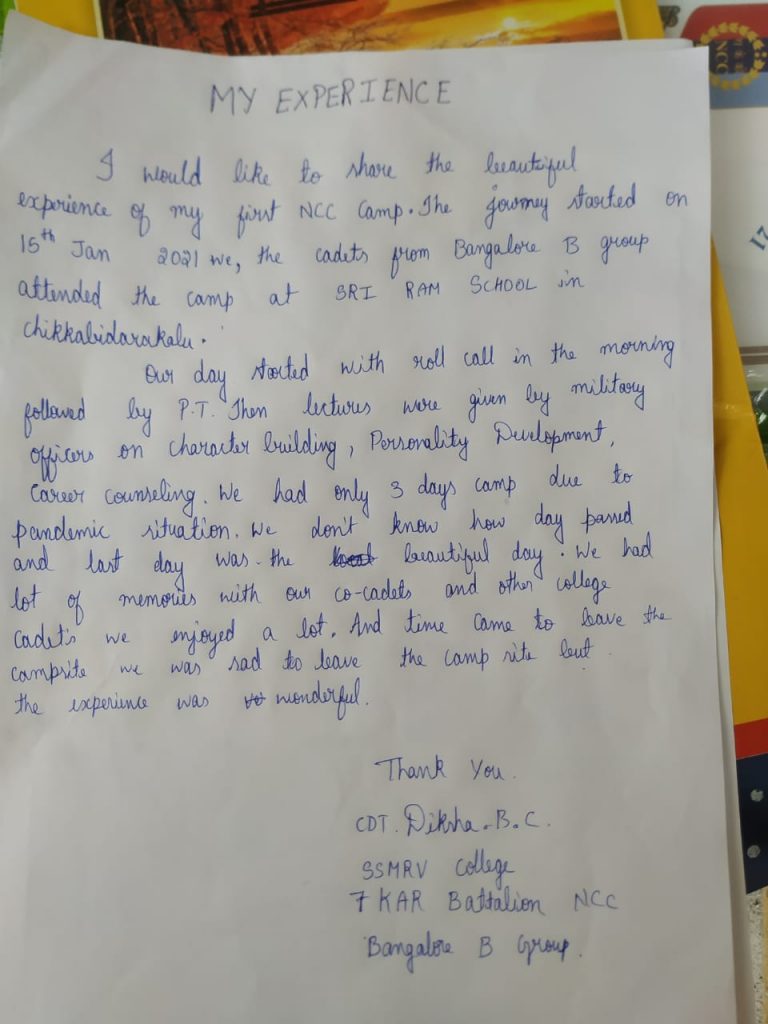 MY EXPERIENCE
I would like to share the beautiful
experience of my first NCC Camp. The journey started on
15th Jan 2021 we, the cadets from Bangalore B group
attended the camp at SRI RAM SCHOOL in
chikkabidarakalu.
Our day started with roll call in the morning
followed by P.T. Then lectures were given by military
officers on character building, Personality Development,
Career counseling. We had only 3 days camp due to
pandemic situation. We don't know how day passed
and last day was the beautiful day. We had
lot of memories with our co-cadets and other college
cadet's we enjoyed a lot. And time came to leave the
campsite we was sad to leave the camp site but
the experience was wonderful.
Thank You.
CDT. Diksha. B. C.
SSMRV College
7 KAR Battalion NCC
Bangalore B Group.
NCC
17